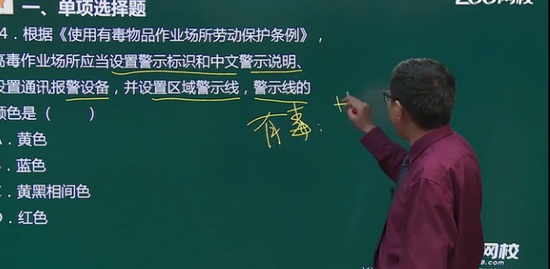 一、单项选择题
200网校
4.根据《使用有毒物品作业场所劳动保护条例》,
高毒作业场所应当设置警示标识和中文警示说明、
设置通讯报警设备，并设置区域警示线，警示线的
颜色是（ ）
A．黄色
B．蓝色
C．黄黑相间色
D．红色
有毒：
网校
s.com